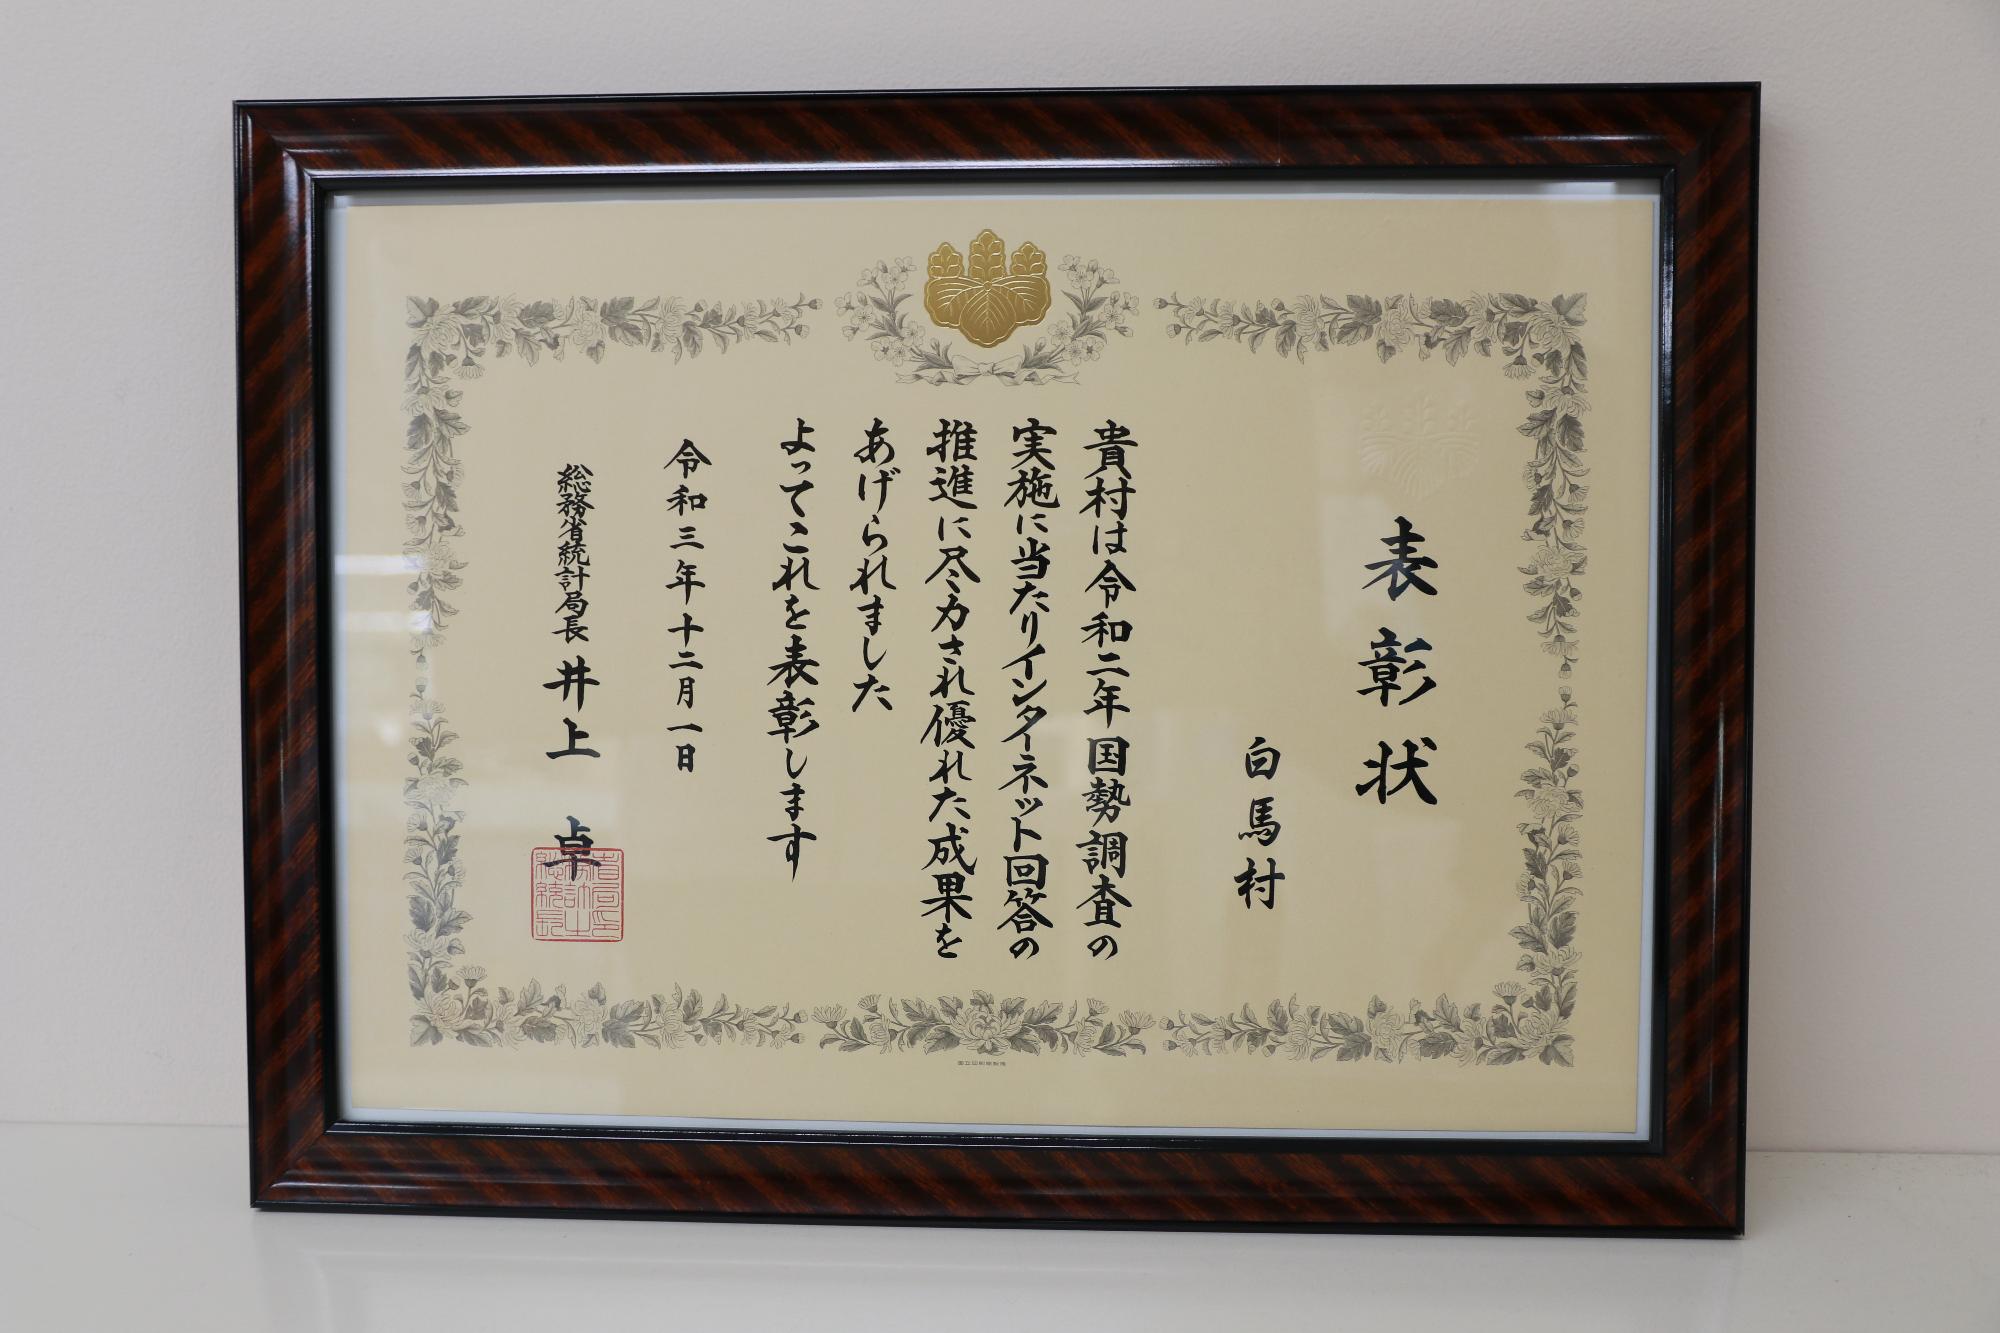 表彰状
白馬村
貴村は令和二年国勢調査の
実施に当たりインターネット回答の
推進に尽力され優れた成果を
あげられました
よってこれを表彰します
令和三年十二月一日
総務省統計局長 井上 卓